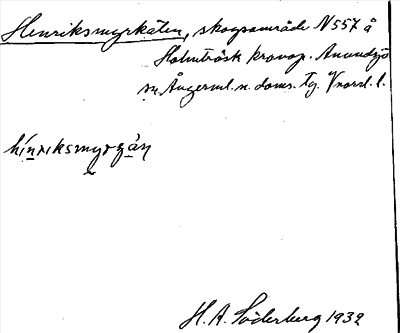 Henriksmyrkåten, skogsområde N 557 å
Holmträsk kronop. Anundsjö
sn Ångerml. n. doms. tg. Vnorrl. l.
hínriksmyrgån
H. A. Söderberg 1932